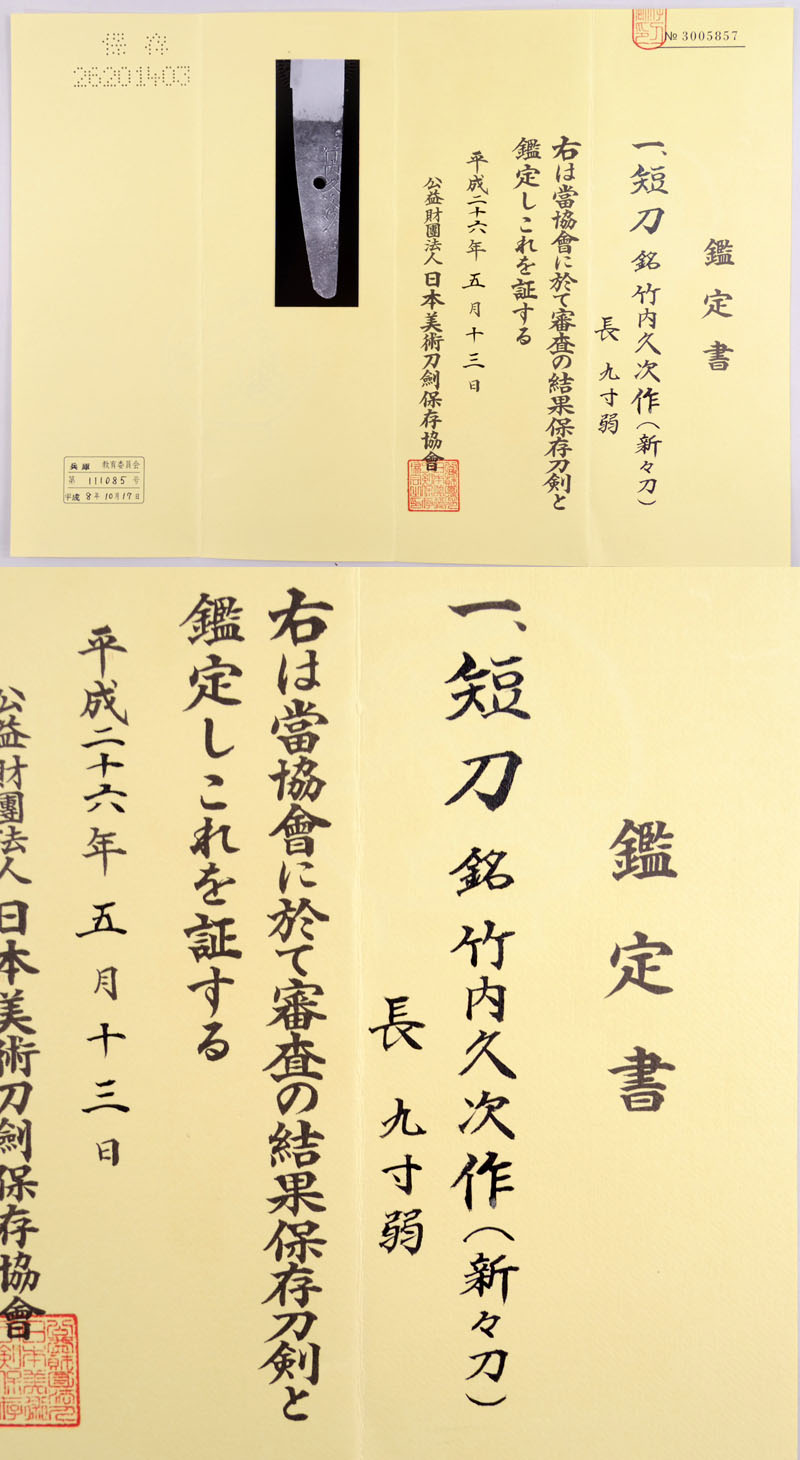 № 3005857
鑑定書
一、短刀 銘 竹内久次作(新々刀)
長 九寸弱
右は當協會に於て審査の結果保存刀剣と
鑑定しこれを証する
平成二十六年 五月十三日
公益財團法人 日本美術刀劍保存協會
保存
26201403
兵庫 教育委員会
第 111085 号
平成 8年10月17日
鑑定書
一、短刀 銘 竹内久次作(新々刀)
長 九寸弱
右は當協會に於て審査の結果保存刀剣と
鑑定しこれを証する
平成二十六年 五月十三日
公益財團法人 日本美術刀劍保存協會